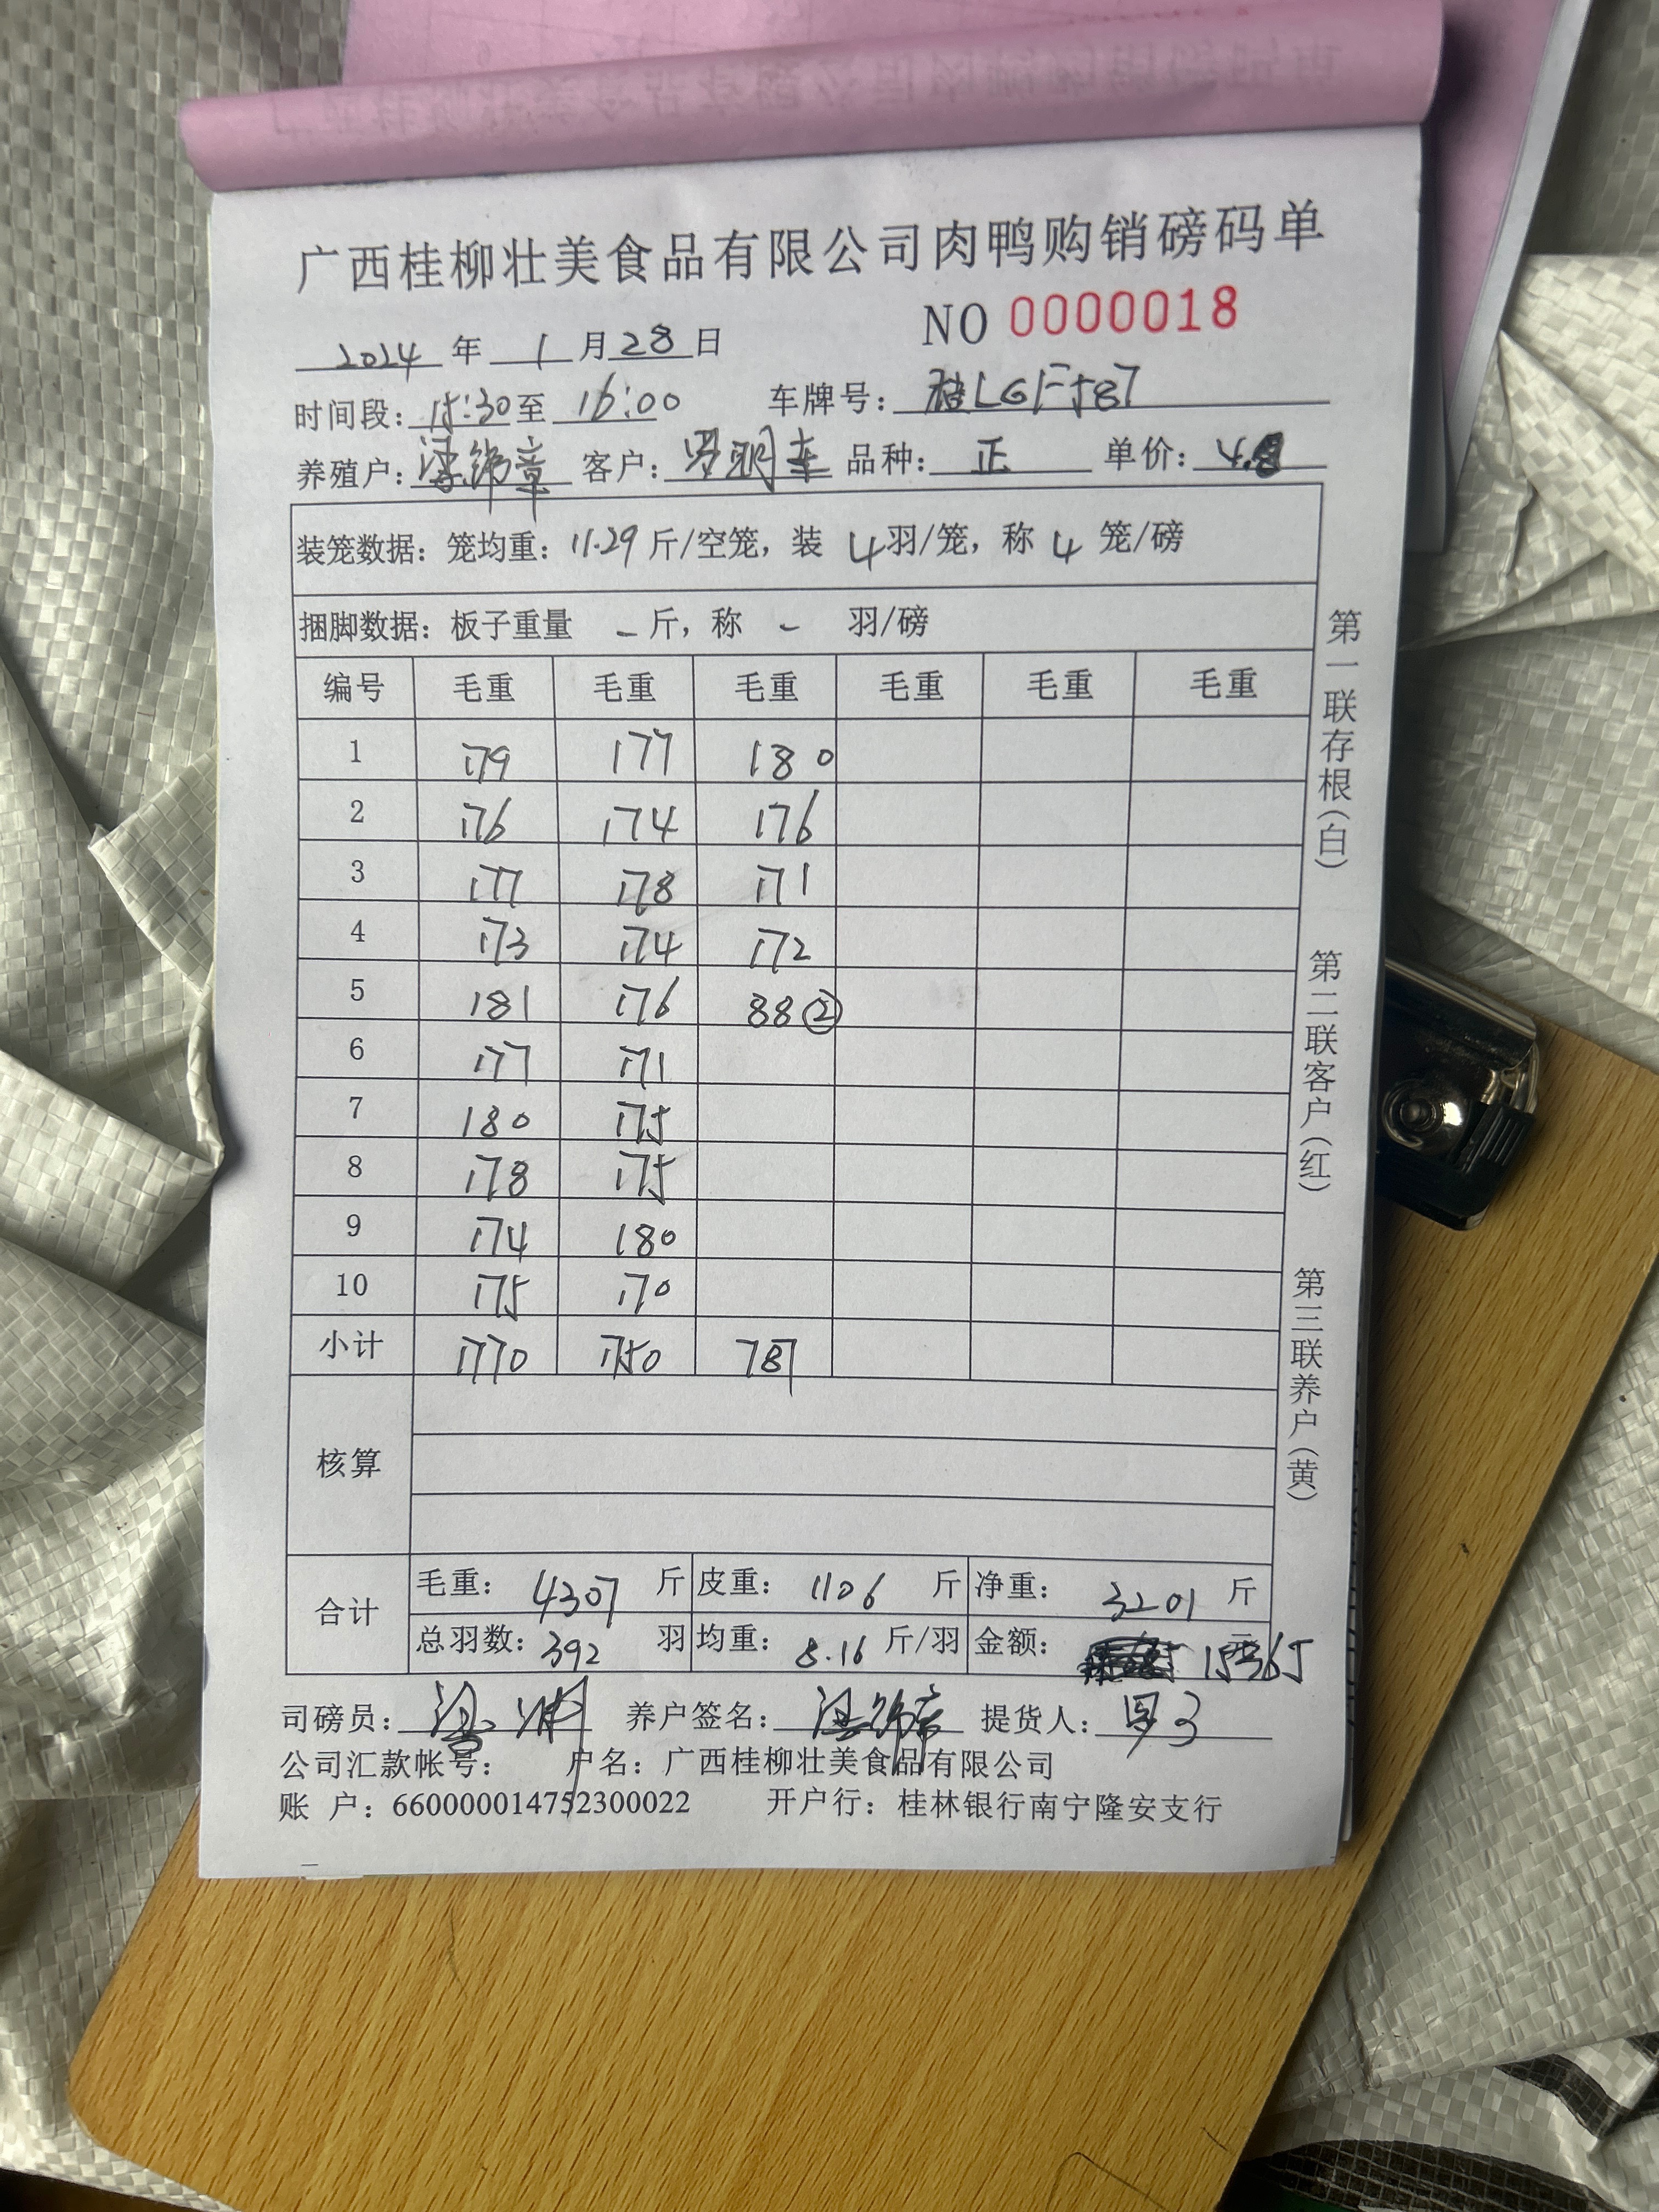 广西桂柳壮美食品有限公司肉鸭购销磅码单
NO 0000018
2024 年 1 月 28 日
时间段: 15:30 至 16:00 车牌号: 桂LGF587
养殖户: 客户: 罗明 品种: 正 单价: 4.8
装笼数据: 笼均重: 11.29 斤/空笼, 装 4 羽/笼, 称 4 笼/磅
捆脚数据: 板子重量 - 斤, 称 - 羽/磅
编号 毛重 毛重 毛重 毛重 毛重 毛重
1 179 177 180
2 176 174 176
3 177 178 171
4 173 174 172
5 181 176 88②
6 177 171
7 180 175
8 178 175
9 174 180
10 175 170
小计 1770 1750 787
核算
合计 毛重: 4307 斤 皮重: 1106 斤 净重: 3201 斤
总羽数: 392 羽 均重: 8.16 斤/羽 金额: 15365
司磅员: 养户签名: 提货人:
公司汇款帐号: 户名: 广西桂柳壮美食品有限公司
账 户: 660000014752300022 开户行: 桂林银行南宁隆安支行
第一联存根(白) 第二联客户(红) 第三联养户(黄)